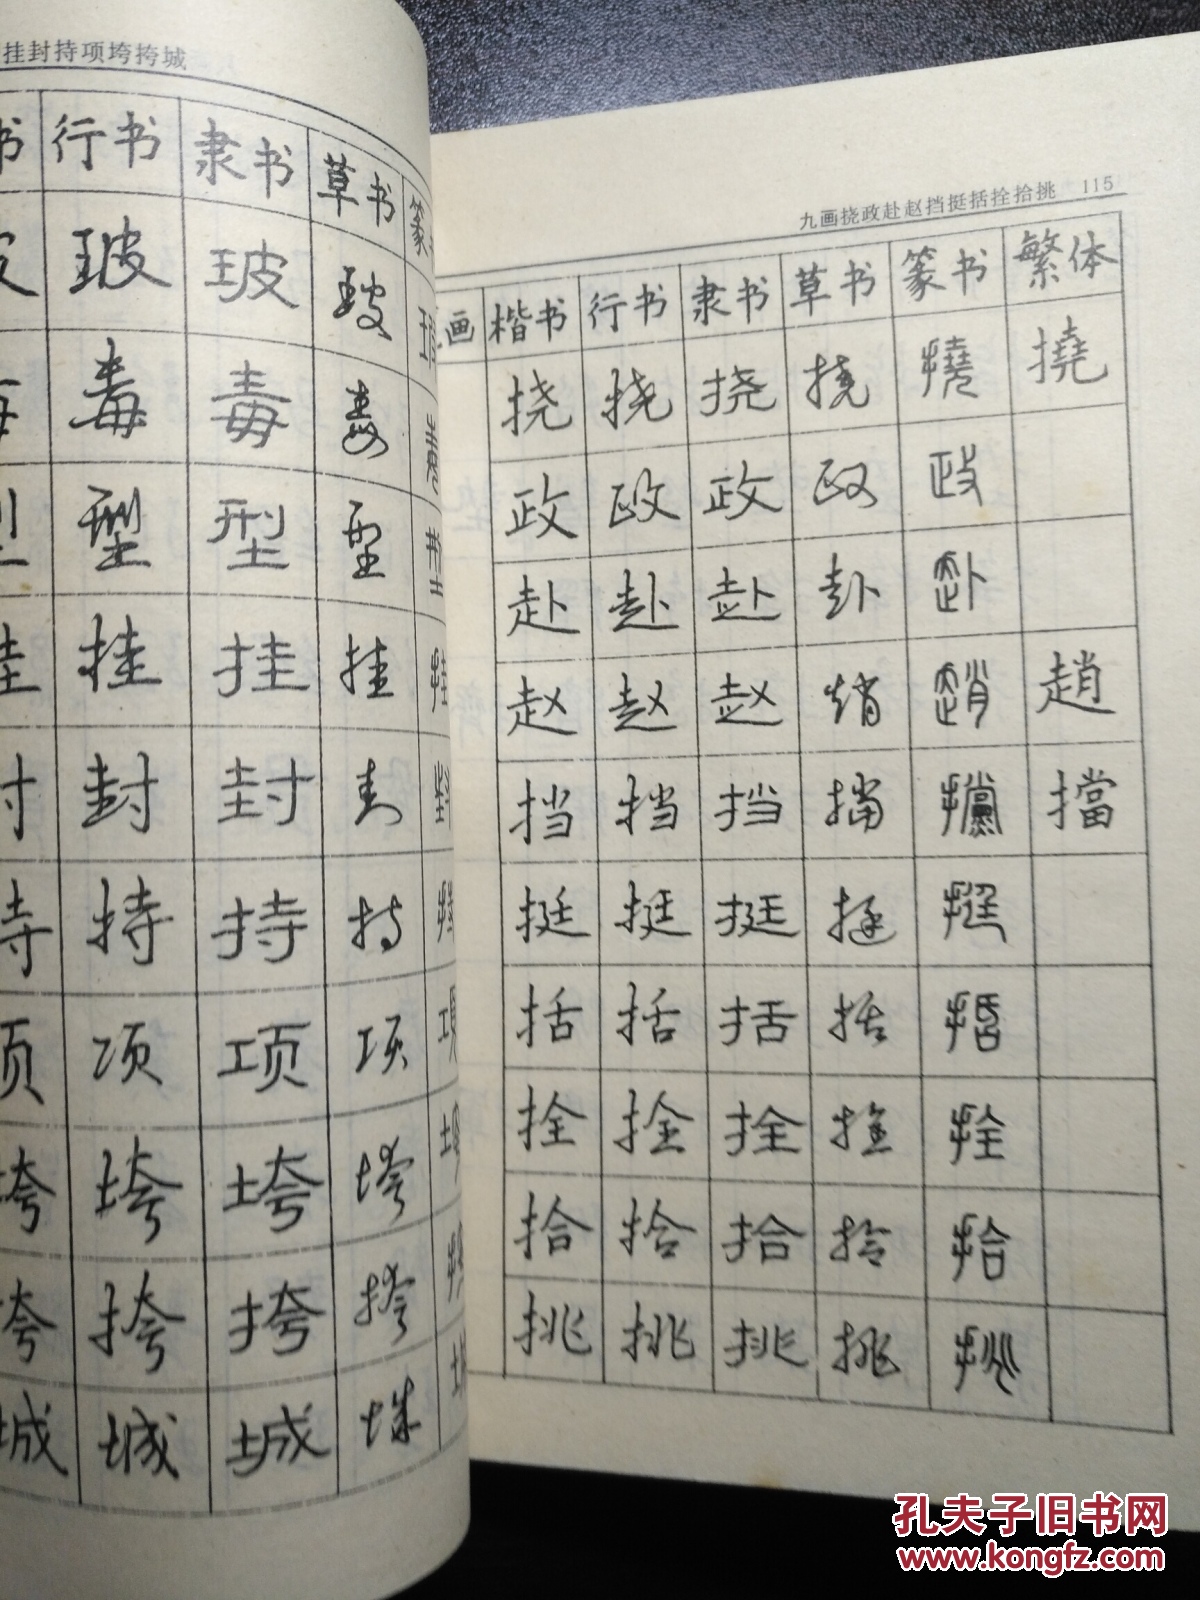 挂封持项垮挎城
书 行书 隶书 草书 篆
玻 玻 玻
毒 毒 毒
型 型 型
挂 挂 挂
封 封 封 封
持 持 持 持
项 项 项 项
垮 垮 垮 垮
挎 挎 挎 挎
城 城 城 城
九画挠政赴赵挡挺括拴拾挑 115
画 楷书 行书 隶书 草书 篆书 繁体
挠 挠 挠 挠 撓 撓
政 政 政 政 政
赴 赴 赴 赴 赴
赵 赵 赵 趙 趙 趙
挡 挡 挡 擋 攩 擋
挺 挺 挺 挺 挺
括 括 括 括 括
拴 拴 拴 拴 拴
拾 拾 拾 拾 拾
挑 挑 挑 挑 挑
孔夫子旧书网
www.kongfz.com